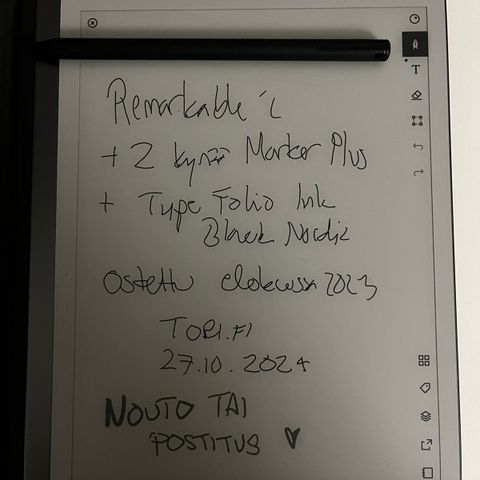 Remarkable 2
+ 2 kynää Marker Plus
+ Type Folio Ink
Black Nordic
ostettu elokuussa 2023
TORI.FI
27.10.2024
NOUTO TAI
POSTITUS ♥
T